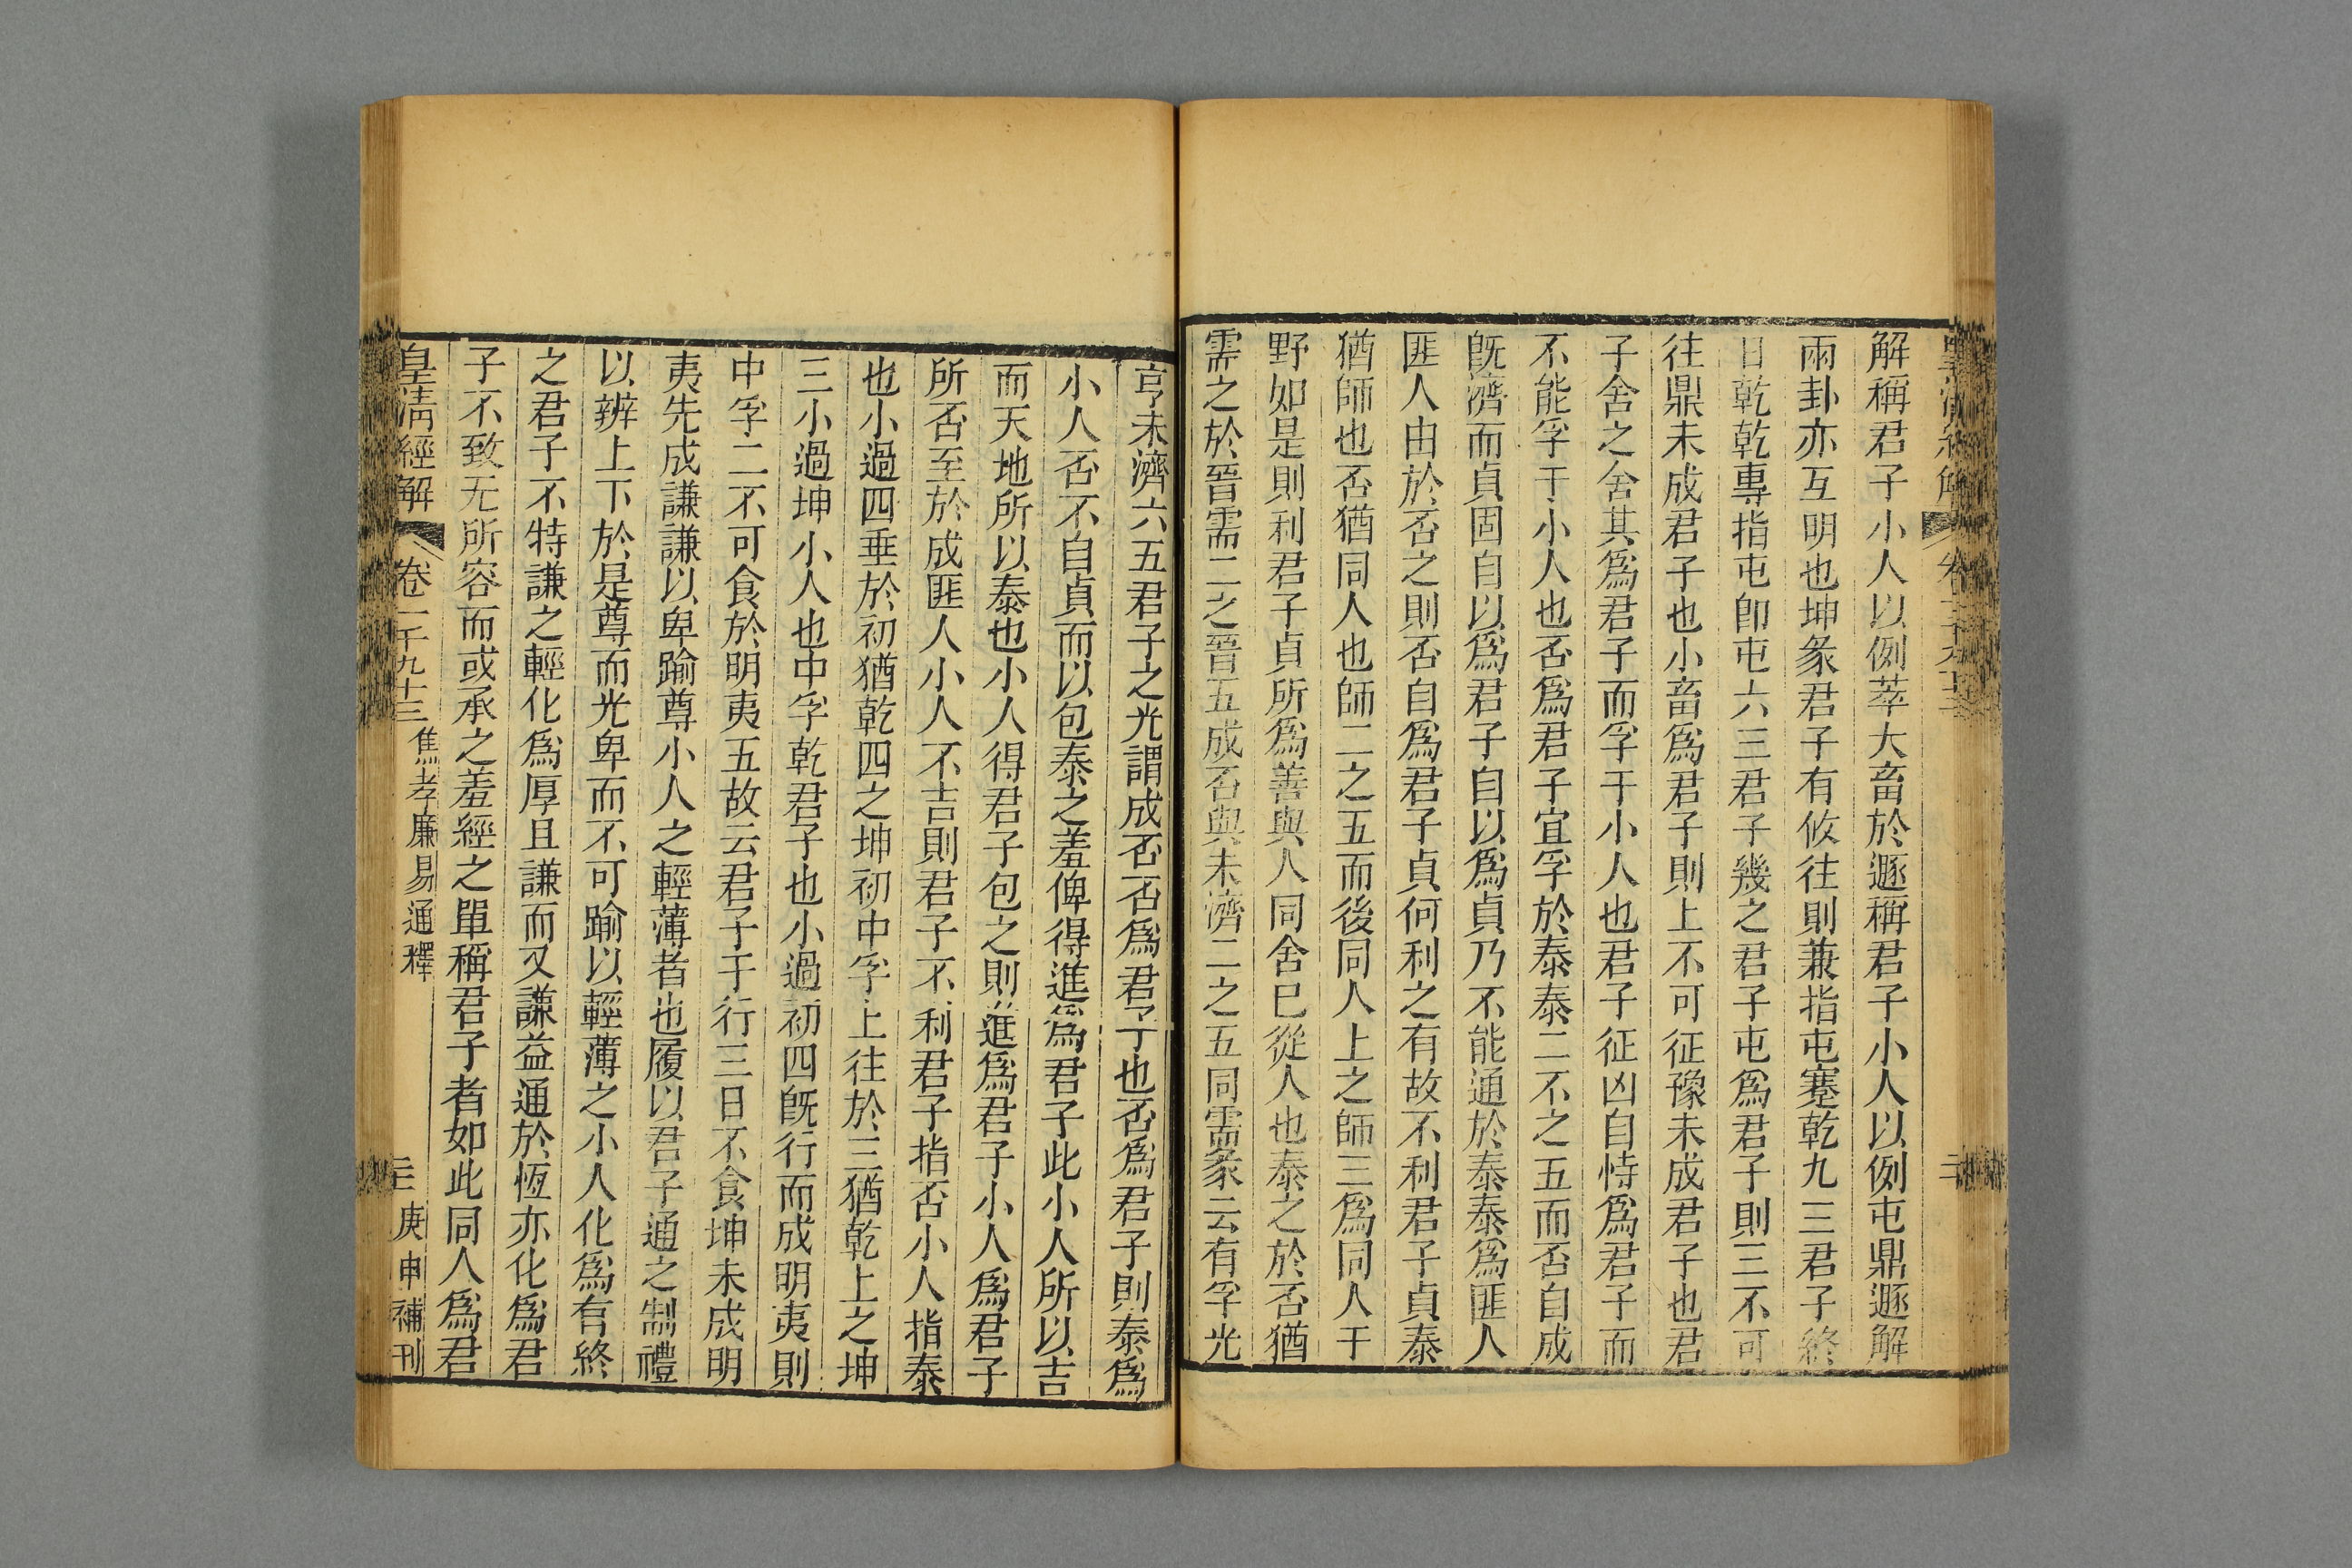 解稱君子小人以例萃大畜於遯稱君子小人以例屯鼎遯解
兩卦亦互明也坤彖君子有攸往則兼指屯蹇乾九三君子終
日乾乾專指屯卽屯六三君子幾之君子屯爲君子則三不可
往鼎未成君子也小畜爲君子則上不可征豫未成君子也君
子舍之舍其爲君子而孚于小人也君子征凶自恃爲君子而
不能孚于小人也否爲君子宜孚於泰泰二不之五而否自成
旣濟而貞固自以爲君子自以爲貞乃不能通於泰泰爲匪人
匪人由於否之則否自爲君子貞何利之有故不利君子貞泰
猶師也否猶同人也師二之五而後同人上之師三爲同人于
野如是則利君子貞所爲善與人同舍已從人也泰之於否猶
需之於晉需二之晉五成否與未濟二之五同需彖云有孚光
亨未濟六五君子之光謂成否否爲君子也否爲君子則泰爲
小人否不自貞而以包泰之羞俾得進爲君子此小人所以吉
而天地所以泰也小人得君子包之則進爲君子小人爲君子
所否至於成匪人小人不吉則君子不利君子指否小人指泰
也小過四垂於初猶乾四之坤初中孚上往於三猶乾上之坤
三小過坤小人也中孚乾君子也小過初四旣行而成明夷則
中孚二不可食於明夷五故云君子于行三日不食坤未成明
夷先成謙謙以卑踰尊小人之輕薄者也履以君子通之制禮
以辨上下於是尊而光卑而不可踰以輕薄之小人化爲有終
之君子不特謙之輕化爲厚且謙而又謙益通於恆亦化爲君
子不致无所容而或承之羞經之單稱君子者如此同人爲君
皇淸經解 卷一千九十三 焦孝廉易通釋 庚申補刊